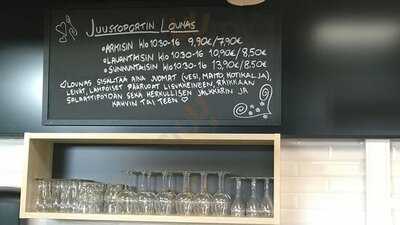 JUUSTOPORTIN LOUNAS
•ARKISIN klo 10.30-16 9,90€/7,90€
•LAUANTAISIN klo 10.30-16 10,90€/8,50€
•SUNNUNTAISIN klo 10.30-16 13,90€/8,50€
LOUNAS SISÄLTÄÄ AINA JUOMAT (VESI, MAITO, KOTIKALJA),
LEIVÄT, LÄMPÖISET PÄÄRUOAT LISUKKEINEEN, RAIKKAAN
SALAATTIPÖYDÄN SEKÄ HERKULLISEN JÄLKKÄRIN JA
KAHVIN TAI TEEN ♡